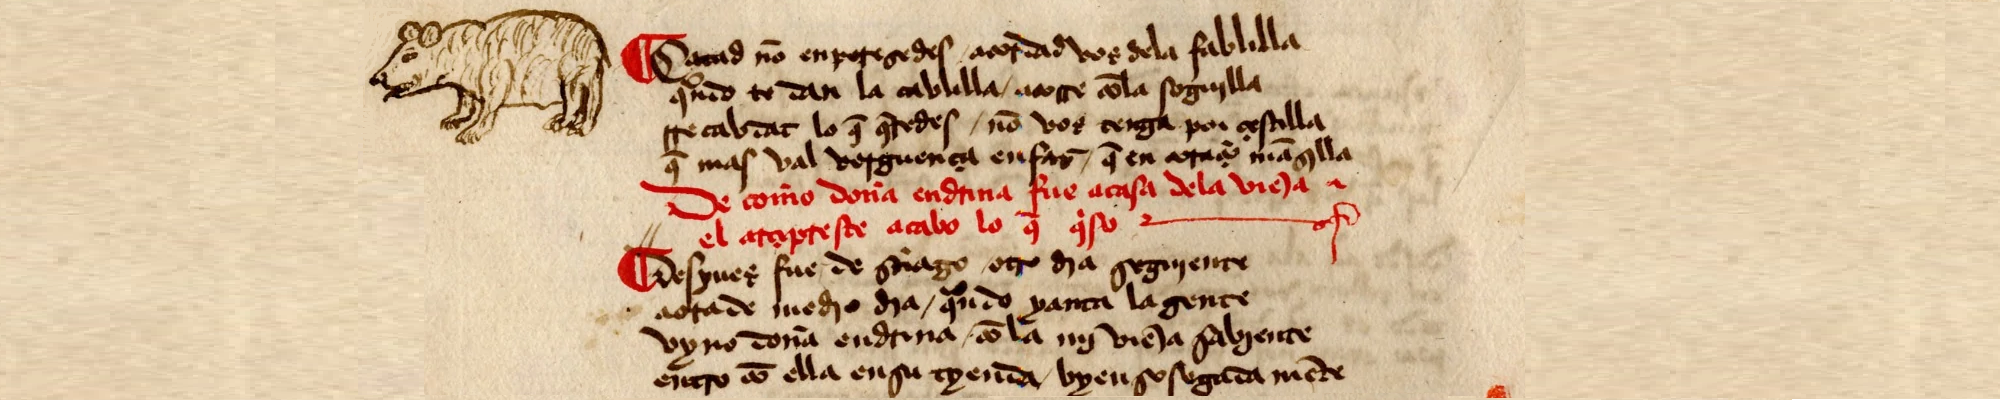 Catad nõ enperesedes acordad vos dela fablilla
qñdo te dan la cablilla / acorre cõla soguilla
rrecabdat lo q̃ q̃redes / nõ vos tenga por çestilla
q̃ mas val verguença enfaz / q̃ en coraçõ mãsilla
De commo doña endrina fue acasa dela vieja e
el arçipreste acabo lo q̃ q̃so
despues fue de santiago otro dia seguiente
aora de medio dia / qñdo yanta la gente
vyno doña endrina / cõ la mj vieja sabiente
entro cõ ella ensu tyenda / byen sosegada mẽte